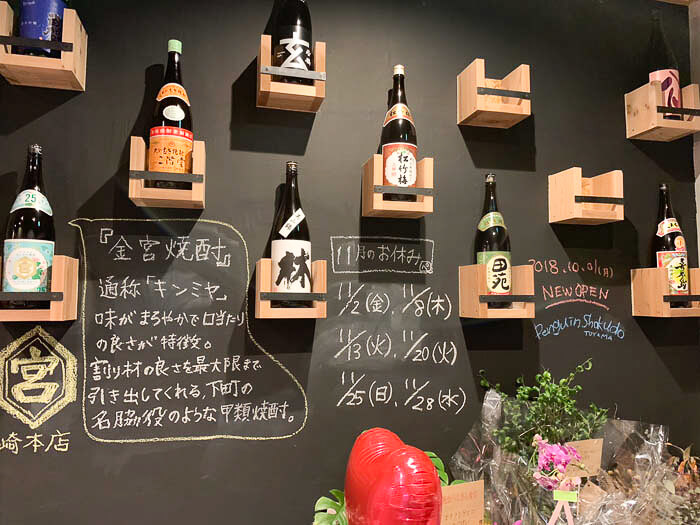 玄
25
宮
大分むぎ焼酎
二階堂
松竹梅
林
田苑
喜界島
『金宮焼酎』
通称「キンミヤ」
味がまろやかで口当たり
の良さが特徴。
割り材の良さを最大限まで
引き出してくれる、下町の
名脇役のような甲類焼酎。
宮
崎本店
11月のお休み
11/2(金)、11/8(木)
11/13(火)、11/20(火)
11/25(日)、11/28(水)
2018.10.01(月)
NEW OPEN
Penguin Shokudo
TOYAMA